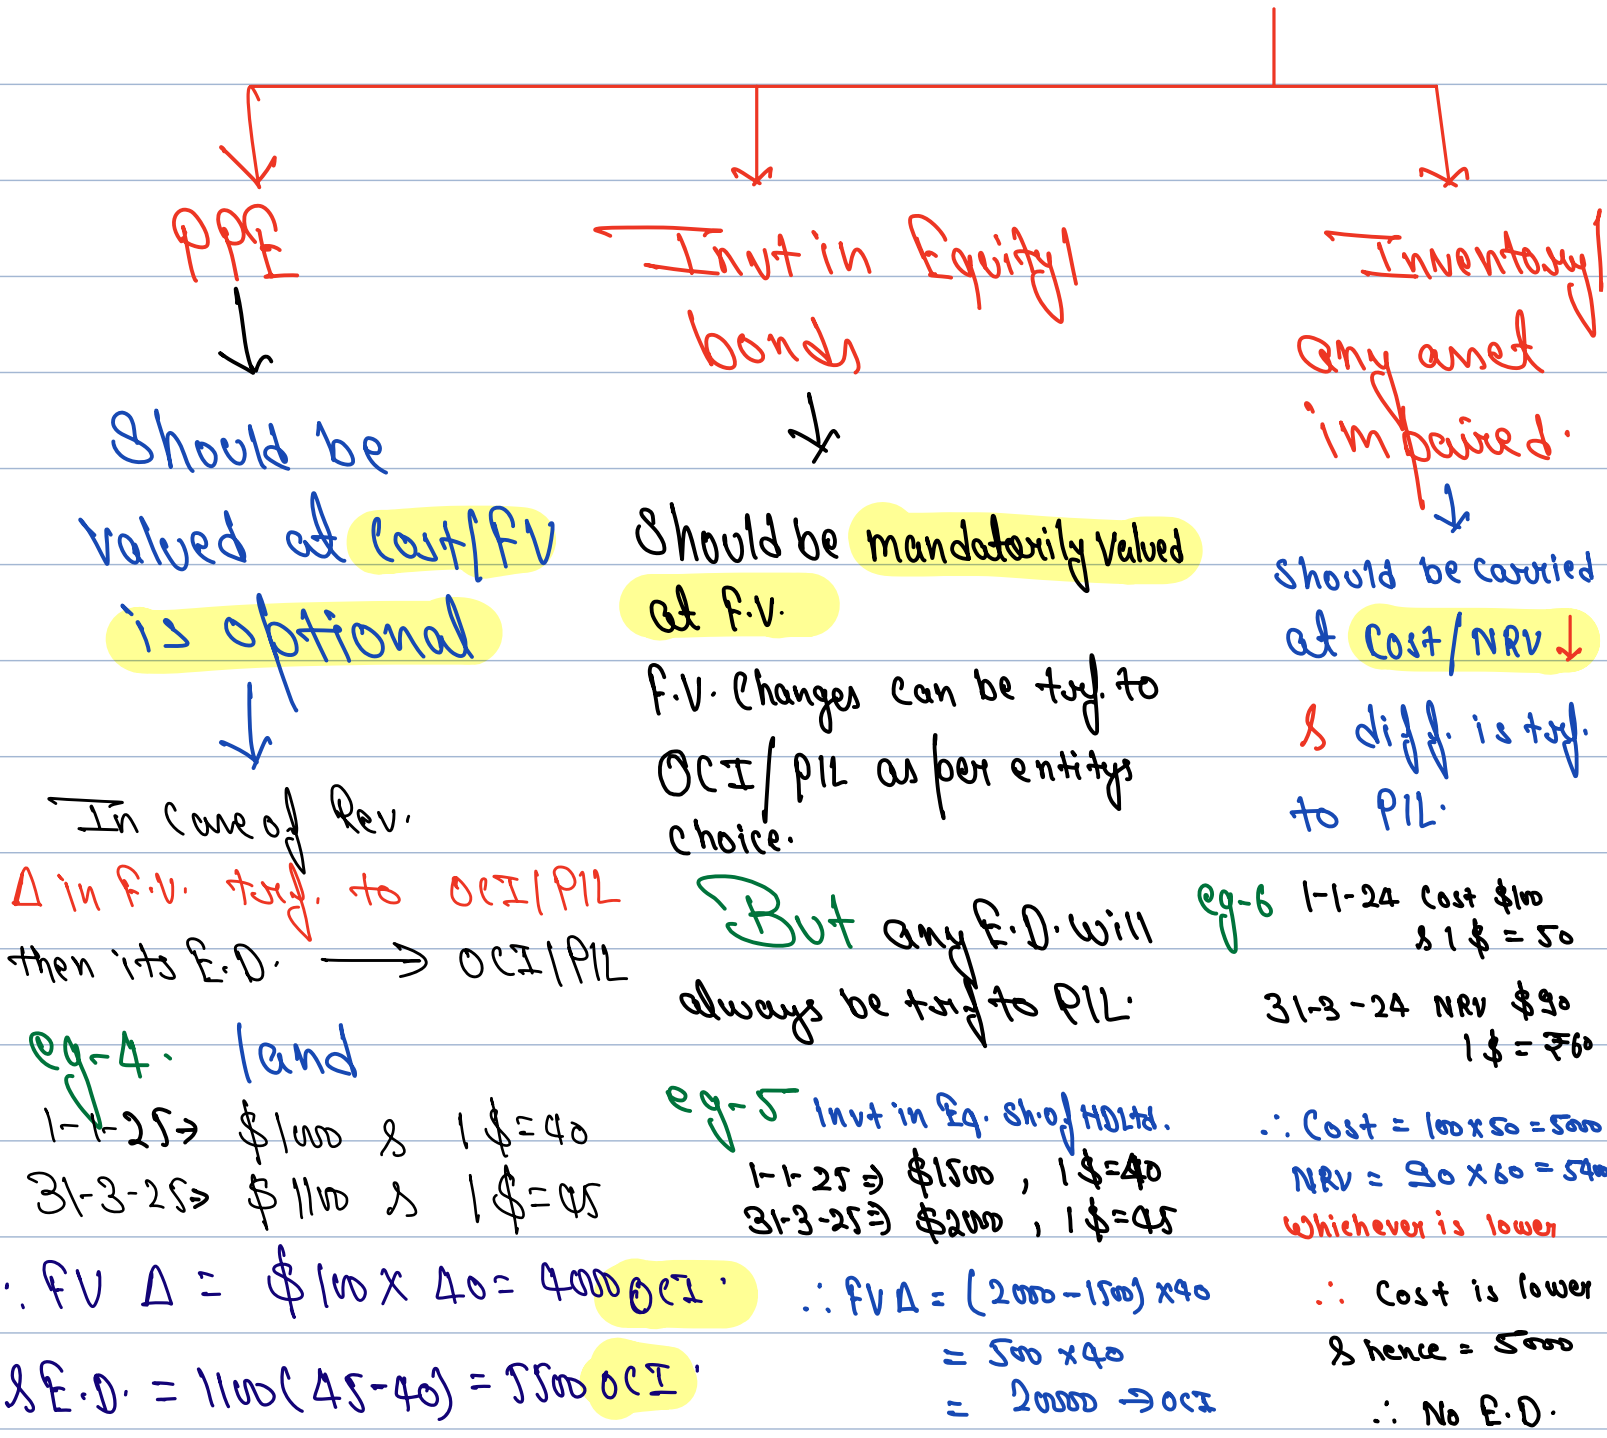 PPE
Should be
valued at Cost/FV
is optional
In case of Rev.
Δ in F.V. trf. to OCI/P/L
then its E.D. → OCI/P/L
eg-4. land
1-1-25→ $1000 & 1$=40
31-3-25→ $1100 & 1$=45
∴ FV Δ = $100 × 40 = 4000 OCI.
& E.D. = 1100(45-40) = 5500 OCI.
Invt in Equity/
bonds
Should be mandatorily valued
at F.V.
F.V. Changes can be trf. to
OCI/P/L as per entitys
choice.
But any E.D. will
always be trf to P/L.
eg-5 Invt in Eq. Sh. of HDLtd.
1-1-25⇒ $1500, 1$=40
31-3-25⇒ $2000, 1$=45
∴ FVΔ = (2000-1500) ×40
= 500 ×40
= 20000 → OCI
Inventory/
any asset
impaired.
Should be carried
at Cost/NRV ↓
& diff. is trf.
to P/L.
eg-6 1-1-24 Cost $100
& 1$ = 50
31-3-24 NRV $90
1$ = ₹60
∴ Cost = 100×50 = 5000
NRV = 90 ×60 = 5400
whichever is lower
∴ Cost is lower
& hence = 5000
∴ No E.D.